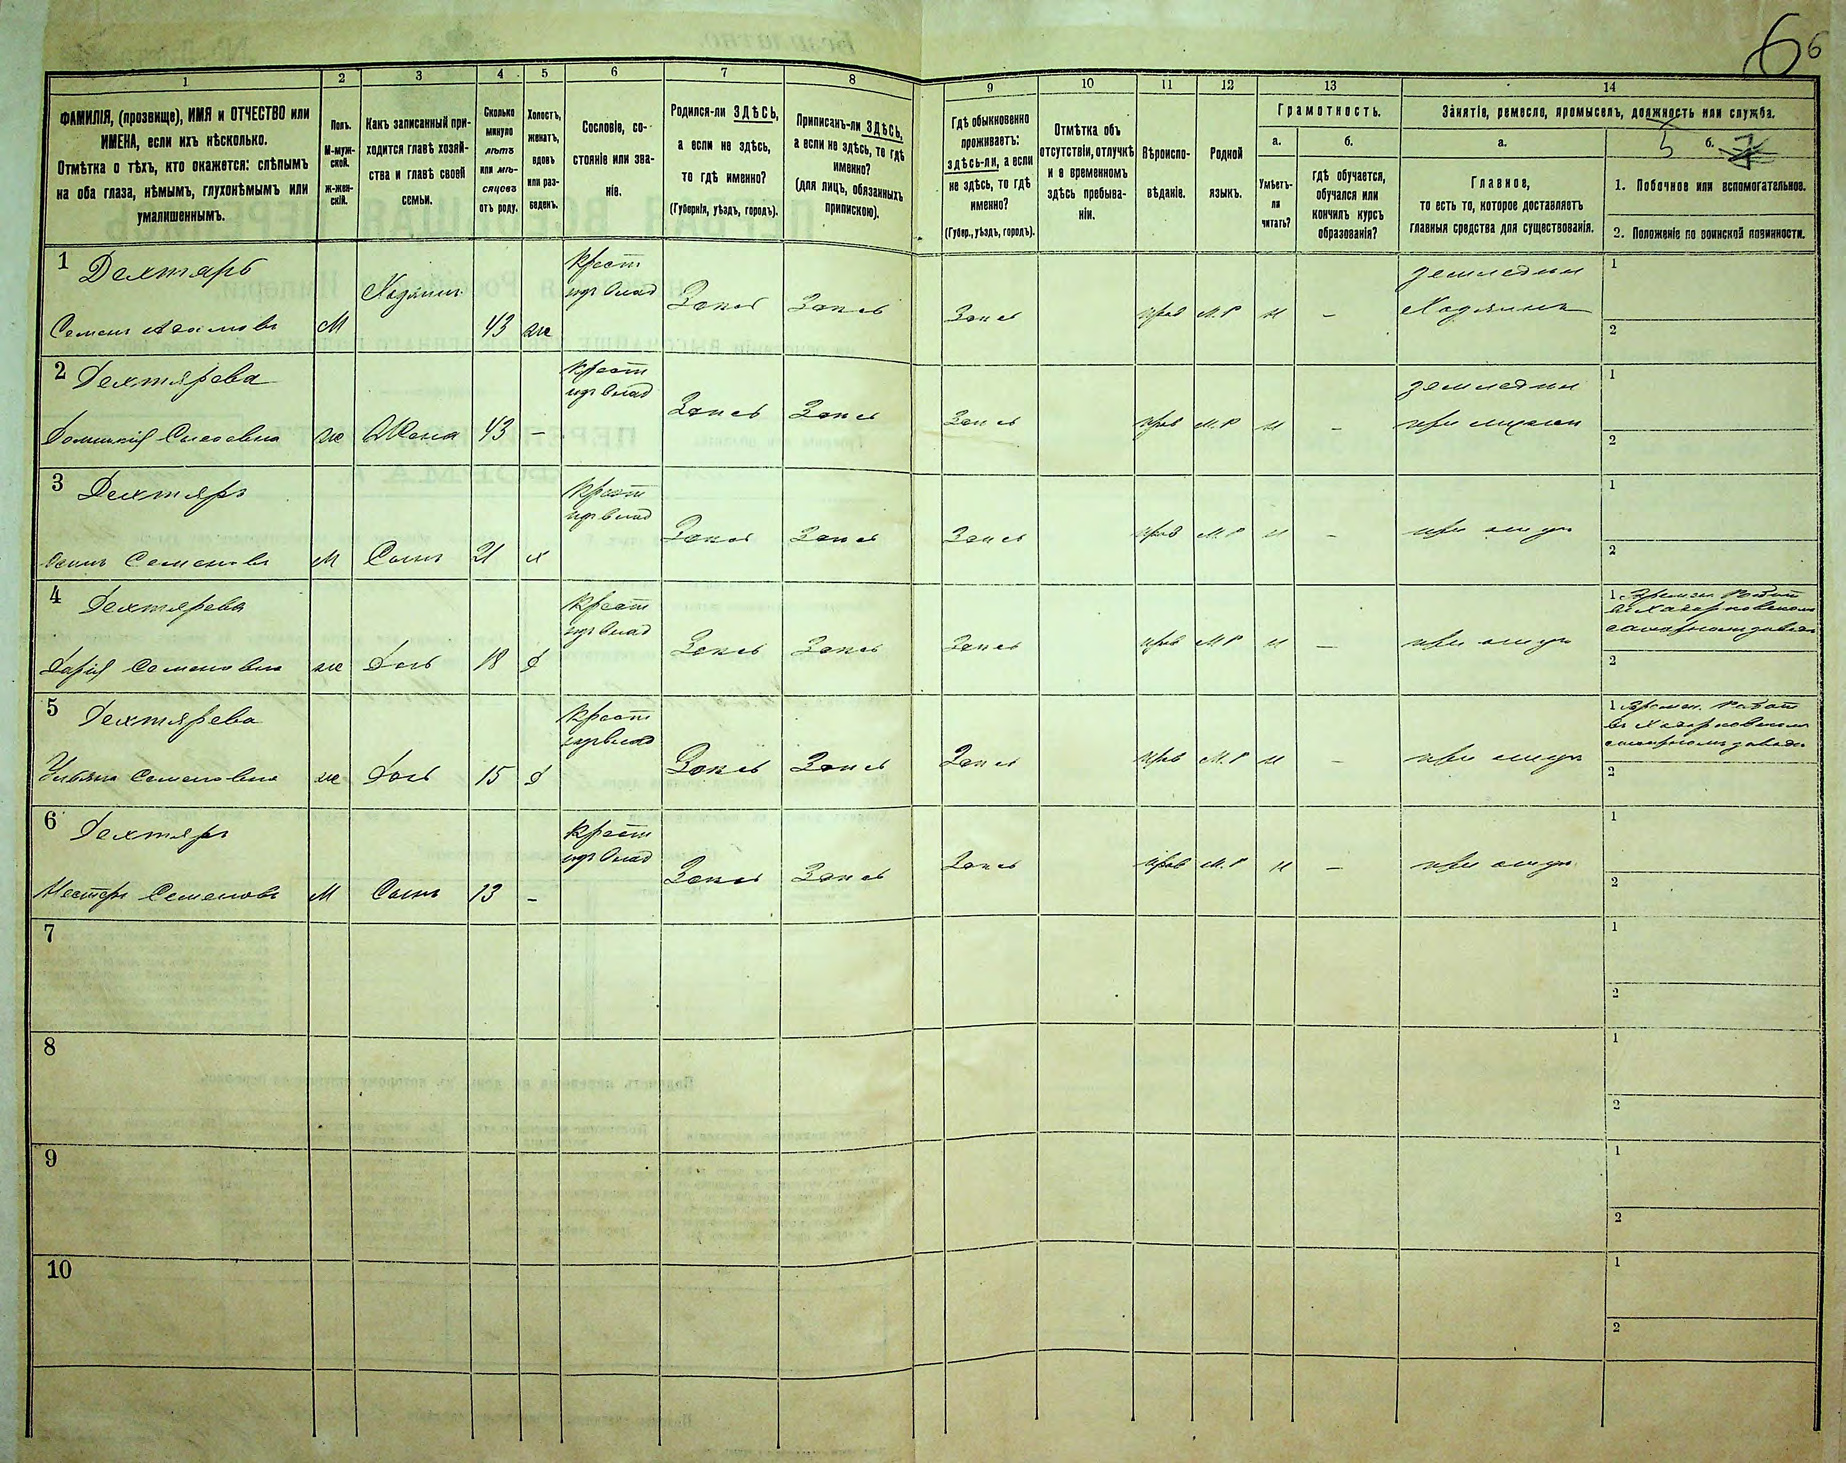 6 6
1
2
3
4
5
6
7
8
9
10
11
12
13
14
ФАМИЛІЯ, (прозвище), ИМЯ и ОТЧЕСТВО или
ИМЕНА, если ихъ нѣсколько.
Отмѣтка о тѣхъ, кто окажется: слѣпымъ
на оба глаза, нѣмымъ, глухонѣмымъ или
умалишеннымъ.
Полъ.
М-муж-
ской.
ж-жен-
скій.
Какъ записанный при-
ходится главѣ хозяй-
ства и главѣ своей
семьи.
Сколько
минуло
лѣтъ
или мѣ-
сяцевъ
отъ роду.
Холостъ,
женатъ,
вдовъ
или раз-
веденъ.
Сословіе, со-
стояніе или зва-
ніе.
Родился-ли ЗДѢСЬ,
а если не здѣсь,
то гдѣ именно?
(Губернія, уѣздъ, городъ).
Приписанъ-ли ЗДѢСЬ,
а если не здѣсь, то гдѣ
именно?
(для лицъ, обязанныхъ
припискою).
Гдѣ обыкновенно
проживаетъ:
здѣсь-ли, а если
не здѣсь, то гдѣ
именно?
(Губер., уѣздъ, городъ).
Отмѣтка объ
отсутствіи, отлучкѣ
и о временномъ
здѣсь пребыва-
ніи.
Вѣроиспо-
вѣданіе.
Родной
языкъ.
Грамотность.
а.
Умѣетъ-
ли
читать?
б.
гдѣ обучается,
обучался или
кончилъ курсъ
образованія?
Занятіе, ремесло, промыселъ, должность или служба.
а.
Главное,
то есть то, которое доставляетъ
главныя средства для существованія.
5 б. 7
1. Побочное или вспомогательное.
2. Положеніе по воинской повинности.
1 Дехтярь
Семенъ Адамовъ
М
Хозяинъ
43
же
Крест
изъ влад
Здесь
Здесь
Здесь
прав
М.Р
н
–
земледелл
Хозяинъ
1
2
2 Дехтярева
же
Жена
43
–
Крест
изъ влад
Здесь
Здесь
Здесь
прав
М.Р
н
–
земледелл
при мужеи
1
2
3 Дехтярь
Семеновъ
М
Сынъ
21
х
Крест
изъ влад
Здесь
Здесь
Здесь
прав
М.Р
н
–
при отце
1
2
4 Дехтярева
Дарія Семеновна
же
Дочь
18
д
Крест
изъ влад
Здесь
Здесь
Здесь
прав
М.Р
н
–
при отце
1. времен. работ
сахарномъ заводе
2
5 Дехтярева
Ульяна Семеновна
же
Дочь
15
д
Крест
изъ влад
Здесь
Здесь
Здесь
прав
М.Р
н
–
при отце
1 времен. работ
сахарномъ заводе
2
6 Дехтярь
Нестеръ Семеновъ
М
Сынъ
13
–
Крест
изъ влад
Здесь
Здесь
Здесь
прав
М.Р
н
–
при отце
1
2
7
1
2
8
1
2
9
1
2
10
1
2